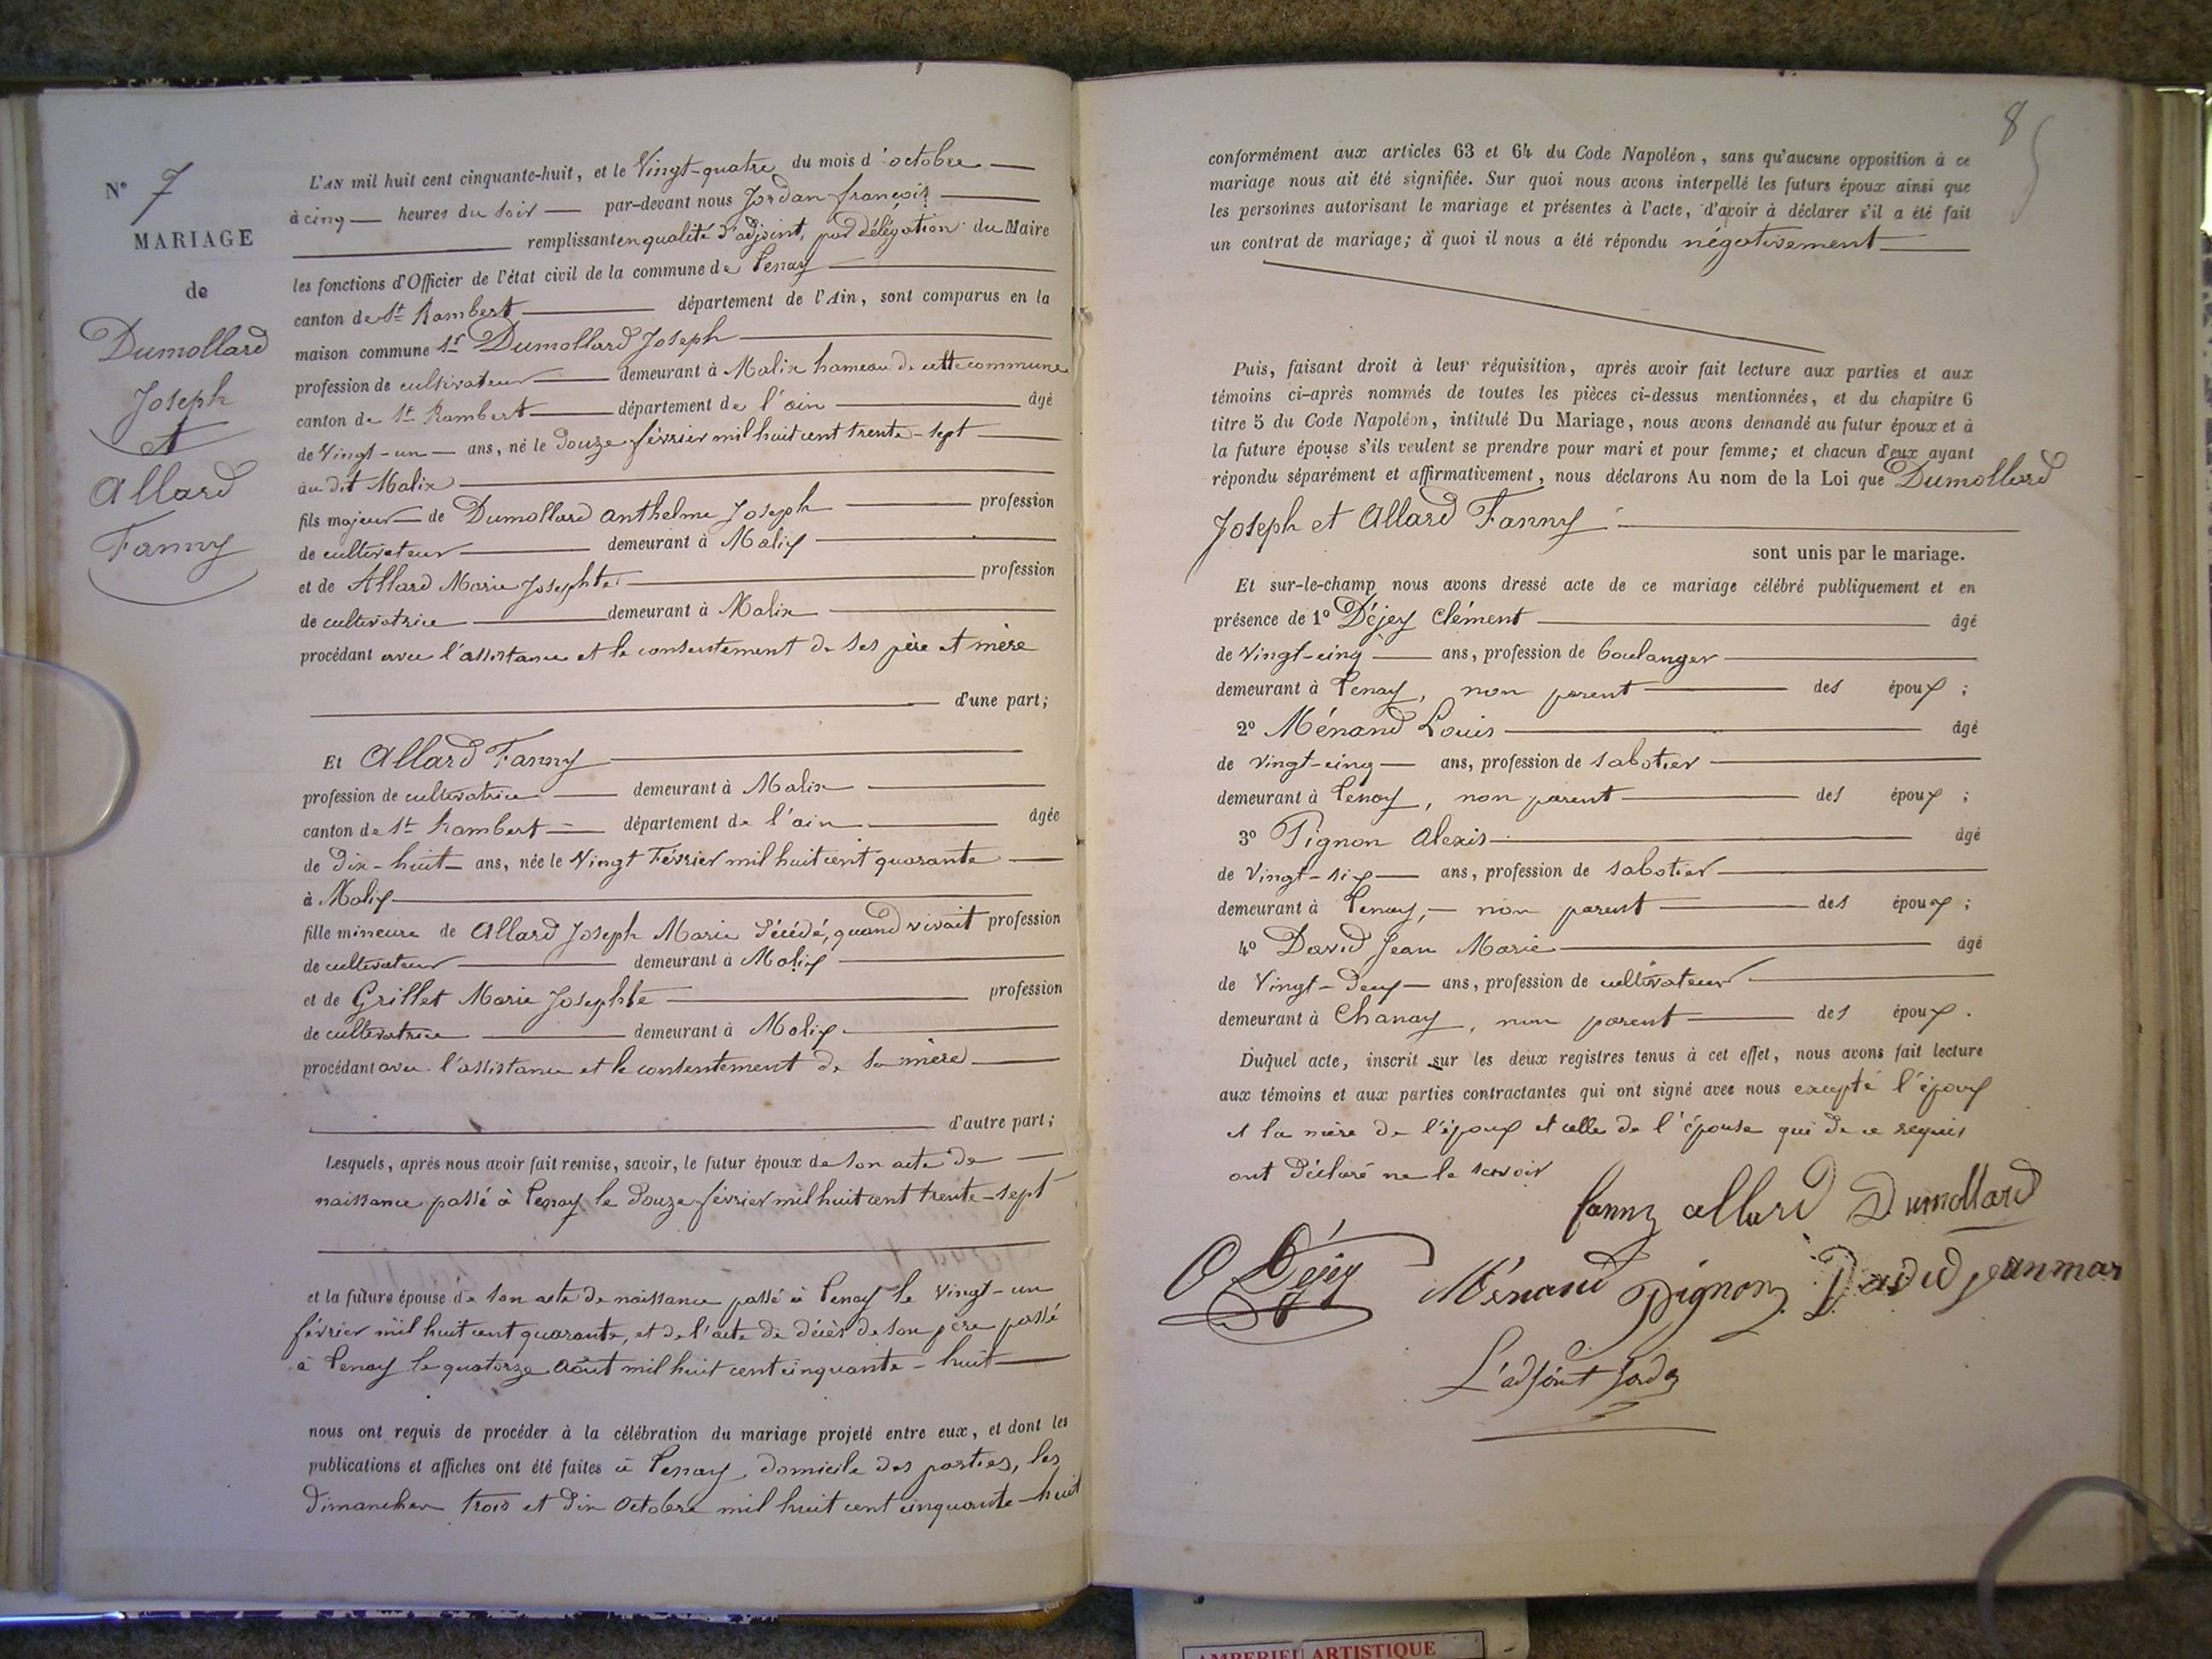 N° 7
MARIAGE
de
Dumollard
Joseph
et
Allard
Fanny
L'AN mil huit cent cinquante-huit, et le Vingt-quatre du mois d'octobre
à cinq heures du soir par-devant nous Jordan françois
remplissant en qualité d'adjoint, par délégation du Maire
les fonctions d'Officier de l'état civil de la commune de Tenay
canton de St Rambert département de l'Ain, sont comparus en la
maison commune Sr Dumollard Joseph
profession de cultivateur demeurant à Malix hameau de cette commune
canton de St Rambert département de l'ain âgé
de Vingt-un ans, né le douze février mil huit cent trente-sept
au dit Malix
fils majeur de Dumollard Anthelme Joseph profession
de cultivateur demeurant à Malix
et de Allard Marie Josephte profession
de cultivatrice demeurant à Malix
procédant avec l'assistance et le consentement de ses père et mère
d'une part;
Et Allard Fanny
profession de cultivatrice demeurant à Malix
canton de St Rambert département de l'ain âgée
de Dix-huit ans, née le Vingt Février mil huit cent quarante
à Malix
fille mineure de Allard Joseph Marie décédé, quand vivait profession
de cultivateur demeurant à Malix
et de Grillet Marie Josephte profession
de cultivatrice demeurant à Malix
procédant avec l'assistance et le consentement de sa mère
d'autre part;
Lesquels, après nous avoir fait remise, savoir, le futur époux de son acte de
naissance passé à Tenay le douze février mil huit cent trente-sept
et la future épouse de son acte de naissance passé à Tenay le vingt-un
février mil huit cent quarante, et de l'acte de décès de son père passé
à Tenay le quatorze Août mil huit cent cinquante-huit
nous ont requis de procéder à la célébration du mariage projeté entre eux, et dont les
publications et affiches ont été faites à Tenay, domicile des parties, les
dimanches trois et dix octobre mil huit cent cinquante-huit
8
conformément aux articles 63 et 64 du Code Napoléon, sans qu'aucune opposition à ce
mariage nous ait été signifiée. Sur quoi nous avons interpellé les futurs époux ainsi que
les personnes autorisant le mariage et présentes à l'acte, d'avoir à déclarer s'il a été fait
un contrat de mariage; à quoi il nous a été répondu négativement
Puis, faisant droit à leur réquisition, après avoir fait lecture aux parties et aux
témoins ci-après nommés de toutes les pièces ci-dessus mentionnées, et du chapitre 6
titre 5 du Code Napoléon, intitulé Du Mariage, nous avons demandé au futur époux et à
la future épouse s'ils veulent se prendre pour mari et pour femme; et chacun d'eux ayant
répondu séparément et affirmativement, nous déclarons Au nom de la Loi que Dumollard
Joseph et Allard Fanny
sont unis par le mariage.
Et sur-le-champ nous avons dressé acte de ce mariage célébré publiquement et en
présence de 1° Déjey Clément âgé
de Vingt-cinq ans, profession de boulanger
demeurant à Tenay, non parent des époux;
2° Ménand Louis âgé
de vingt-cinq ans, profession de sabotier
demeurant à Tenay, non parent des époux;
3° Pignon Alexis âgé
de Vingt-six ans, profession de sabotier
demeurant à Tenay, non parent des époux;
4° David Jean Marie âgé
de Vingt-deux ans, profession de cultivateur
demeurant à Chanay, non parent des époux.
Duquel acte, inscrit sur les deux registres tenus à cet effet, nous avons fait lecture
aux témoins et aux parties contractantes qui ont signé avec nous excepté l'époux
et la mère de l'époux et celle de l'épouse qui de ce requis
ont déclaré ne le savoir
fanny allard Dumollard
Déjey Ménand Pignon David jean mar
L'adjoint Jordan
AMBERIEU ARTISTIQUE